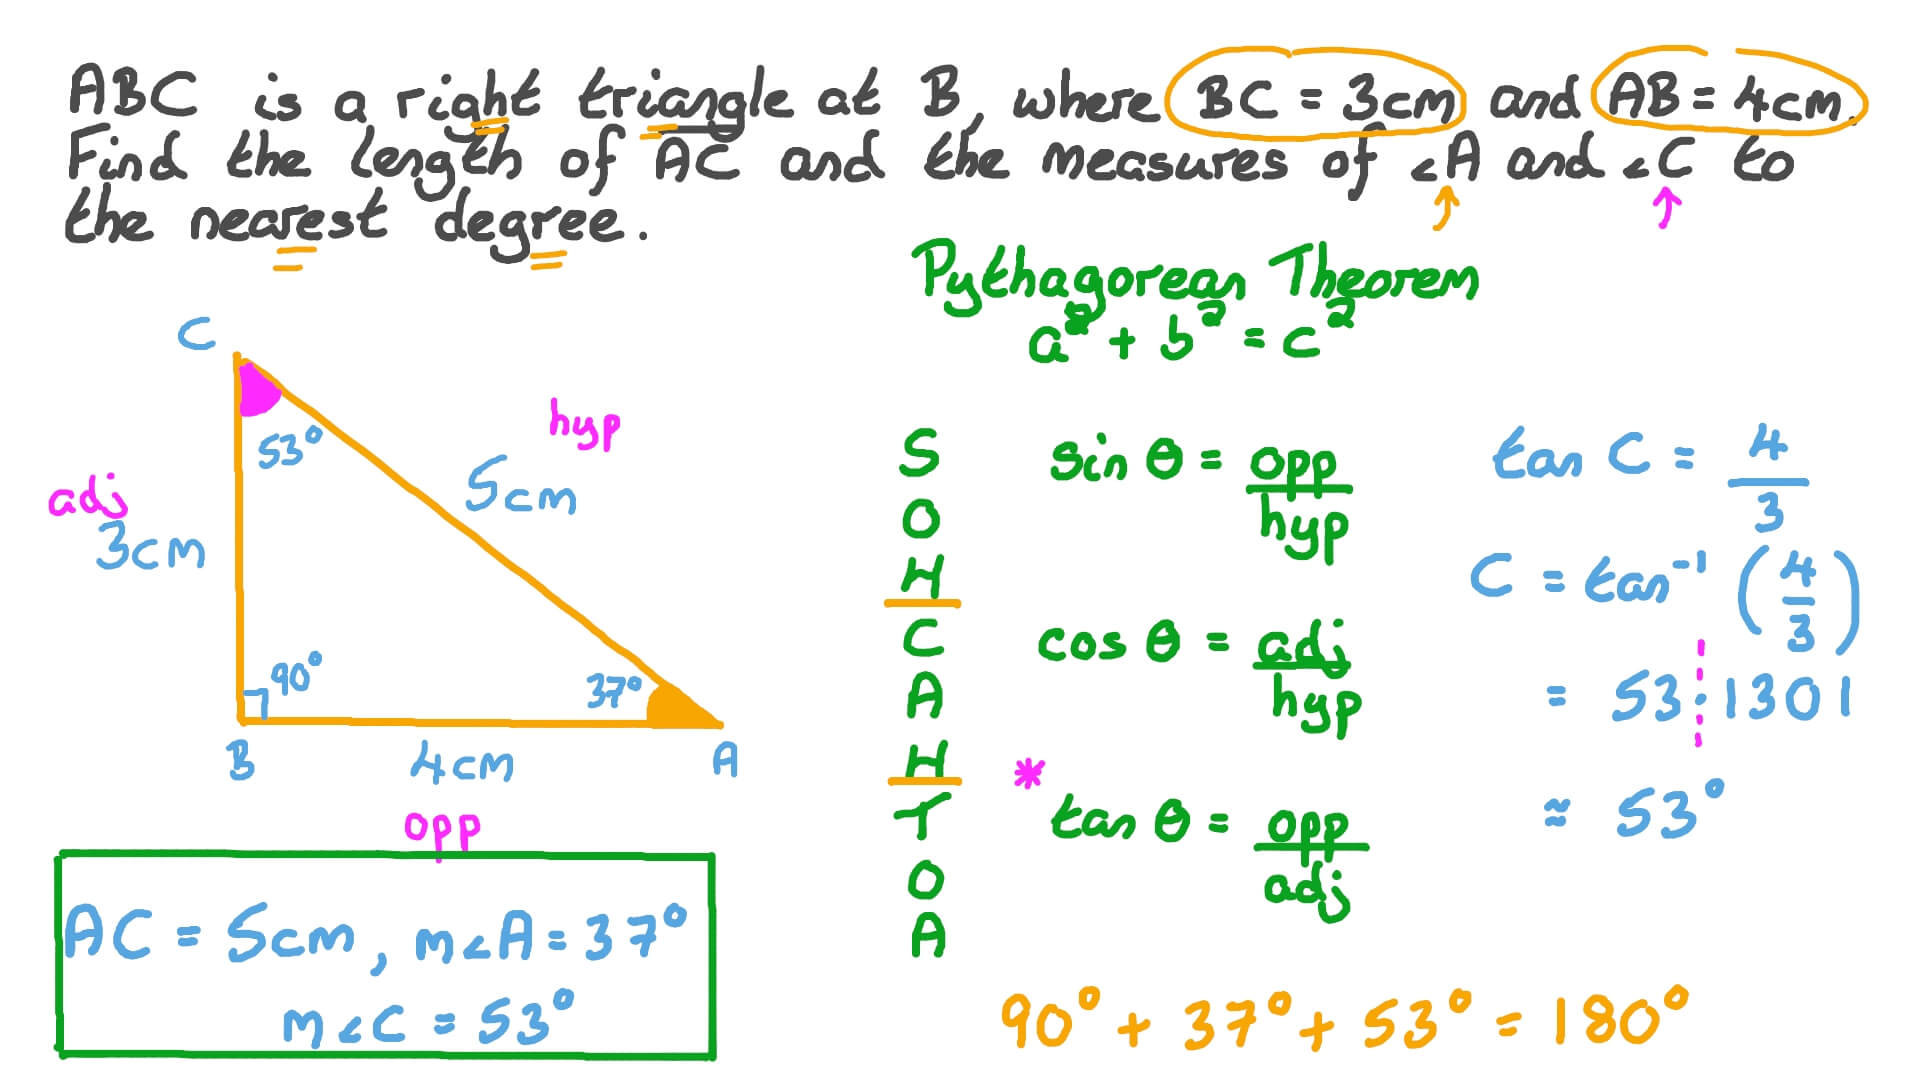 ABC is a right triangle at B, where BC = 3cm and AB = 4cm.
Find the length of AC and the measures of ∠A and ∠C to
the nearest degree.
Pythagorean Theorem
a² + b² = c²
C
53°
hyp
5cm
adj
3cm
90°
37°
B
4cm
A
opp
S
O
H
C
A
H
T
O
A
sin θ = opp/hyp
cos θ = adj/hyp
* tan θ = opp/adj
tan C = 4/3
C = tan⁻¹ (4/3)
= 53.1301
≈ 53°
AC = 5cm, m∠A = 37°
m∠C = 53°
90° + 37° + 53° = 180°